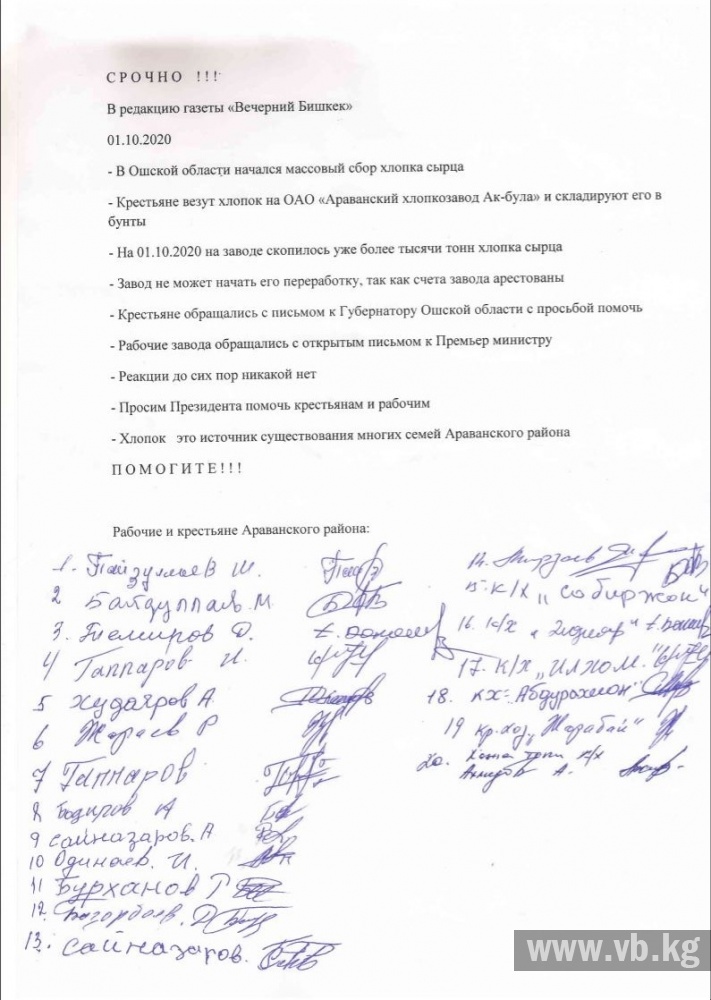 С Р О Ч Н О !!!
В редакцию газеты «Вечерний Бишкек»
01.10.2020
- В Ошской области начался массовый сбор хлопка сырца
- Крестьяне везут хлопок на ОАО «Араванский хлопкозавод Ак-була» и складируют его в
бунты
- На 01.10.2020 на заводе скопилось уже более тысячи тонн хлопка сырца
- Завод не может начать его переработку, так как счета завода арестованы
- Крестьяне обращались с письмом к Губернатору Ошской области с просьбой помочь
- Рабочие завода обращались с открытым письмом к Премьер министру
- Реакции до сих пор никакой нет
- Просим Президента помочь крестьянам и рабочим
- Хлопок это источник существования многих семей Араванского района
П О М О Г И Т Е ! ! !
Рабочие и крестьяне Араванского района:
1. Пайзуллаев Ш.
2 М.
3. Темиров Д.
4 Гаппаров И.
5 Худаяров А
6 Жораев Р
7 Гаппаров
8 Бадиров А
9 Сайназаров. А
10 Одинаев. И.
11 Бурханов Г
12
13. Сайназаров.
14. Мирзаев
15. К/Х „Собиржон"
16. К/Х
17. К/Х „Илхом"
18. КХ- „Абдурахмон"
19 Кр.хоз „Жорабай"
20. К/Х
Ахмедов А.
www.vb.kg